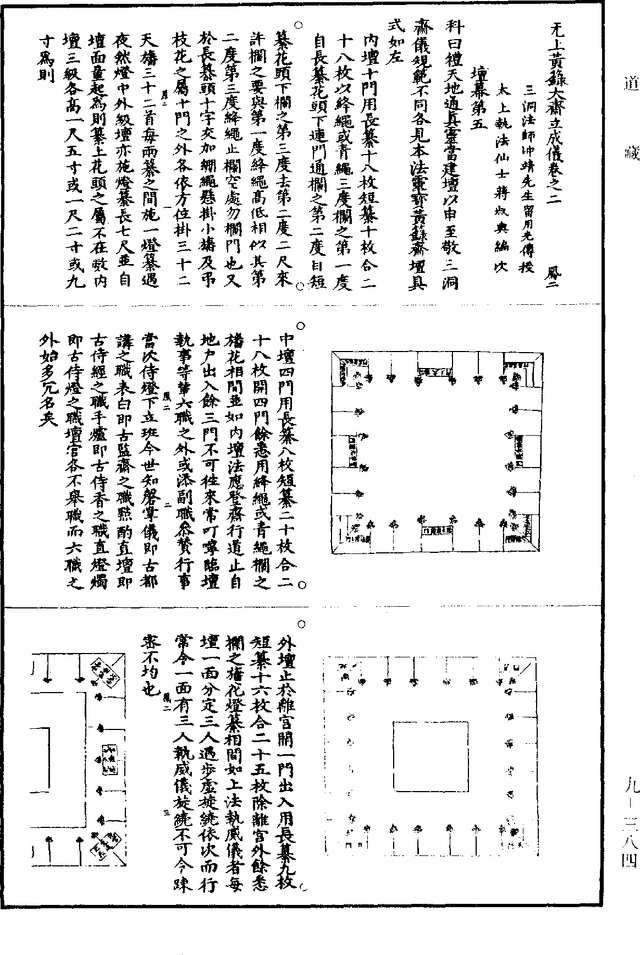 道藏
无上黃籙大齋立成儀卷之二 鳳二
三洞法師沖靖先生留用光傳授
太上執法仙士蔣叔輿編次
壇纂第五
科曰禮天地通真靈當建壇以申至敬三洞
齋儀規範不同各見本法靈寶黃籙齋壇具
式如左
內壇十門用長纂十八枚短纂十枚合二
十八枚以絳繩或青繩三度欄之第一度
自長纂花頭下連門通欄之第二度自短
纂花頭下欄之第三度去第二度二尺來
許欄之要與第一度絳繩高低相似其第
二度第三度絳繩止欄空處勿欄門也又
於長纂頭十字交加綳繩懸掛小旛及弔
枝花之屬十門之外各依方位掛三十二
天旛三十二首每兩纂之間施一燈纂遇
夜然燈中外級壇亦施燈纂長七尺並自
壇面量起為則纂上花頭之屬不在數內
壇三級各高一尺五寸或一尺二寸或九
寸為則
中壇四門用長纂八枚短纂二十枚合二
十八枚開四門餘悉用絳繩或青繩欄之
旛花相間並如內壇法應登齋行道止自
地戶出入餘三門不可往來常叮嚀臨壇
執事等輩六職之外或添副職叅贊行事
當次侍燈下立班今世知磬掌儀即古都
講之職表白即古監齋之職㸃酌直壇即
古侍經之職手爐即古侍香之職直燈燭
即古侍燈之職壇官各不舉職而六職之
外始多冗名矣
外壇止於離宮開一門出入用長纂九枚
短纂十六枚合二十五枚除離宮外餘悉
欄之旛花燈纂相間如上法執威儀者每
壇一面分定三人遇步虛旋繞依次而行
常令一面有三人執威儀旋繞不可令踈
密不均也
九－三八四